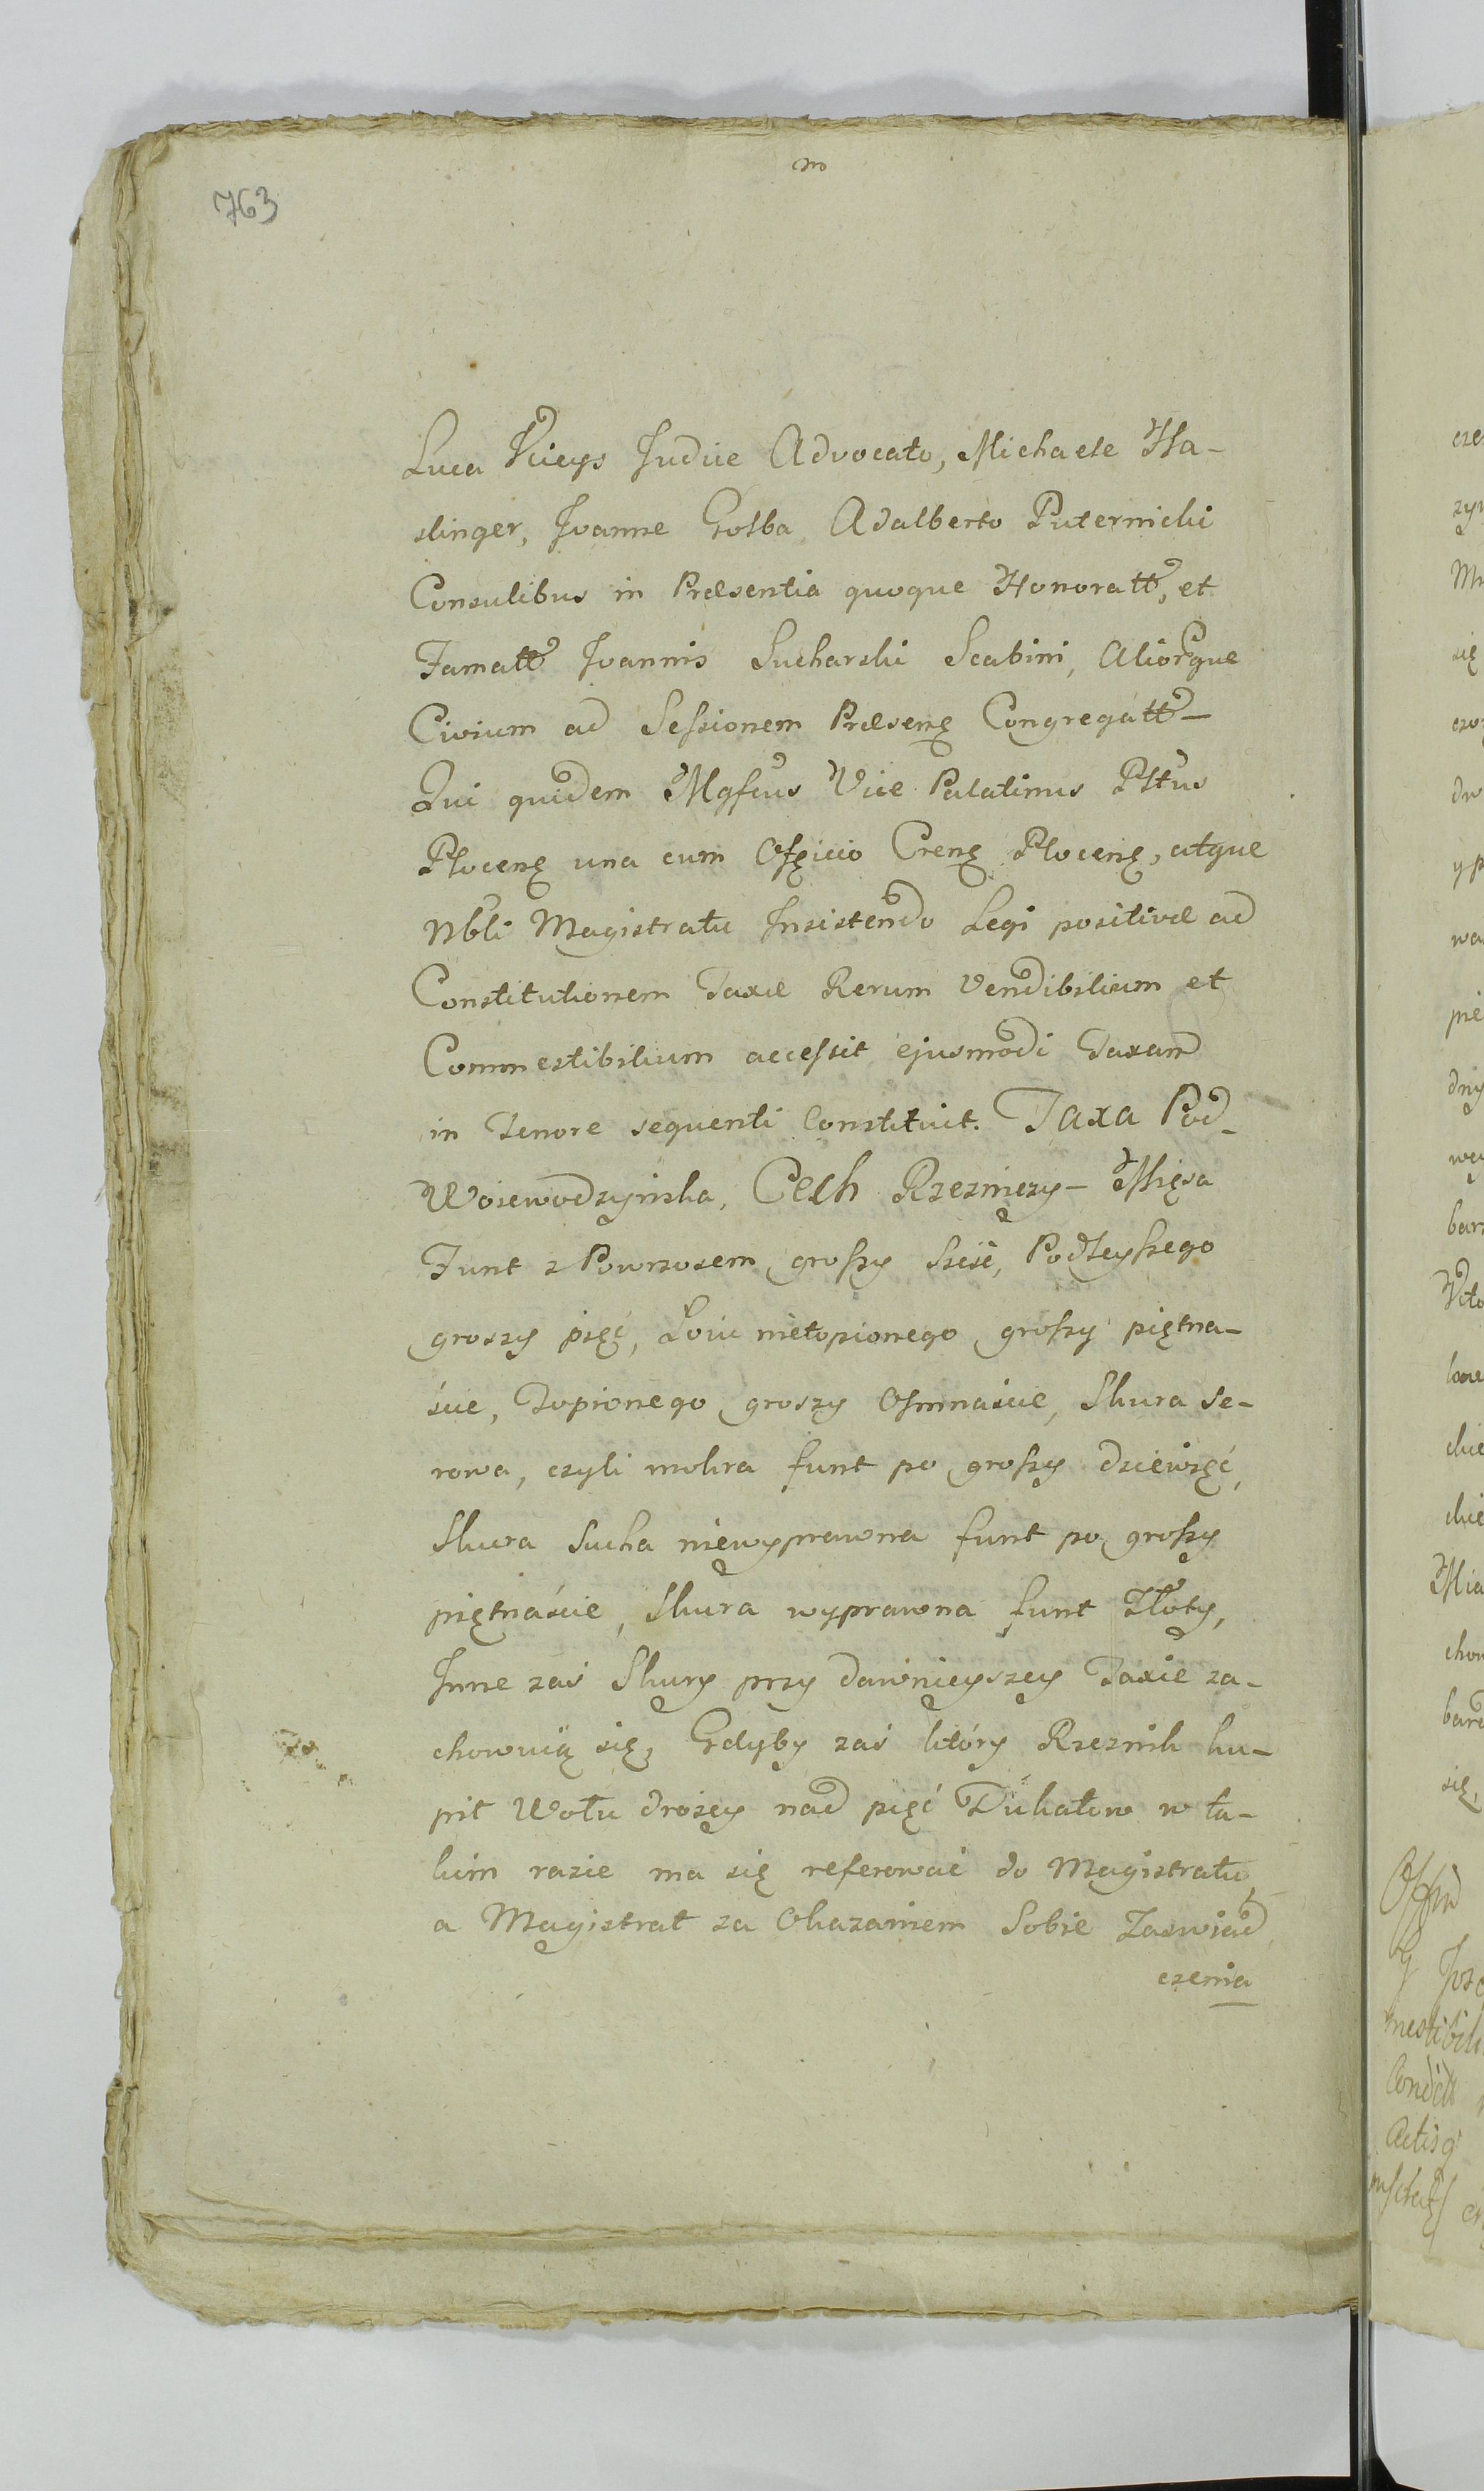 763
Luca Kueys Judice Advocato, Michaele Ha-
slinger, Joanne Gołba Adalberto Puternicki
Consulibus in Præsentia quoque Honoratt, et
Famatt Joannis Sucharski Scabini, Aliorque
Civium ad Sessionem Præsens Congregatt-
Qui quidem Mgfcus Vice Palatinus Pltus
Plocens una cum Officio Crens Plocens, atque
Nbli Magistratu Insistendo Legi positivæ ad
Constitutionem Taxæ Rerum Vendibilium et
Commestibilium accessit ejusmodi Taxam
in Tenore sequenti Constituit. Taxa Pod-
Woiewodzyńska, Cech Rzezniczy - Mięsa
Funt z Powrozem groszy sześć, Podleyszego
groszy pięć, Łoiu nietopionego groszy piętna-
ście, Topionego groszy Osmnaście, Skura se-
rowa, czyli mokra funt po groszy dziewięć,
Skura Sucha niewyprawna funt po groszy
piętnaście, Skura wyprawna funt Złoty,
Inne zaś Skury przy dawnieyszey Taxie za-
chowuią się, Gdyby zaś który Rzeznik ku-
pił Wołu drożey nad pięć Dukatow w ta-
kim razie ma się referować do Magistratu,
a Magistrat za Okazaniem Sobie Zaswiad
czenia